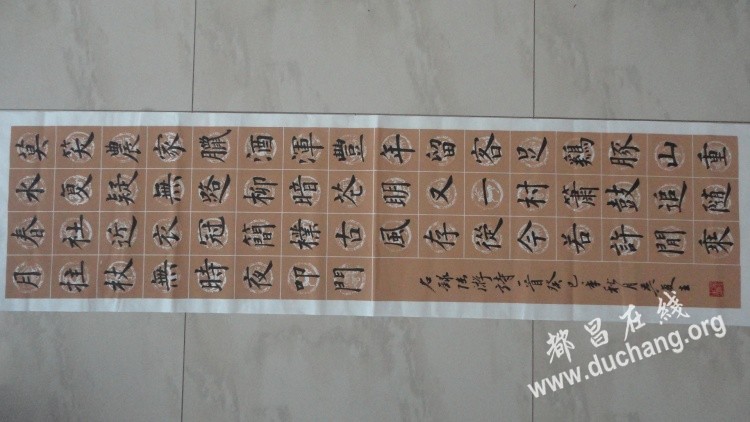 莫笑農家臘酒渾豐年留客足鷄豚山重
水复疑無路柳暗花明又一村簫鼓追隨
春社近衣冠簡樸古風存從今若許閒乘
月拄杖無時夜叩門
右錄陸游詩一首癸巳年秋月
都昌在线
www.duchang.org